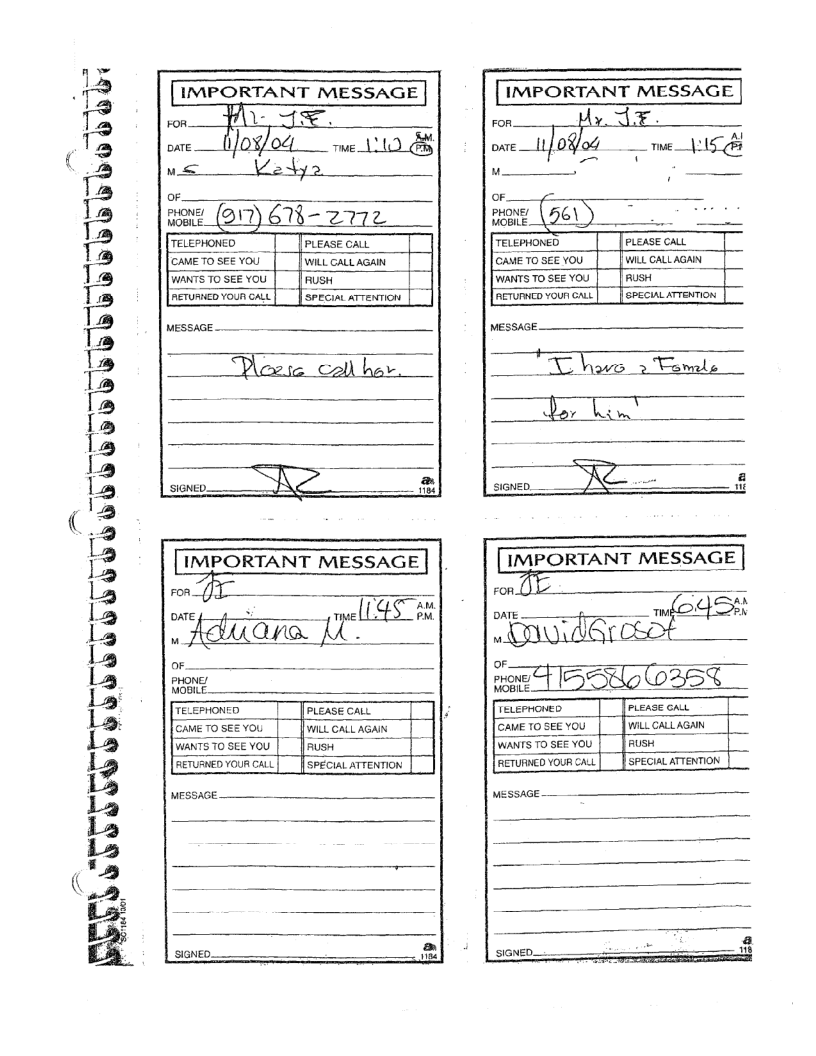 IMPORTANT MESSAGE
FOR Mr. J.E.
DATE 11/08/04 TIME 1:10 A.M. P.M.
M s Katya
OF
PHONE/ MOBILE (917) 678-2772
TELEPHONED PLEASE CALL
CAME TO SEE YOU WILL CALL AGAIN
WANTS TO SEE YOU RUSH
RETURNED YOUR CALL SPECIAL ATTENTION
MESSAGE
Please call her.
SIGNED
1184
IMPORTANT MESSAGE
FOR Mr. J.E.
DATE 11/08/04 TIME 1:15
M
OF
PHONE/ MOBILE (561)
TELEPHONED PLEASE CALL
CAME TO SEE YOU WILL CALL AGAIN
WANTS TO SEE YOU RUSH
RETURNED YOUR CALL SPECIAL ATTENTION
MESSAGE
"I have a Female
for him"
SIGNED
118
IMPORTANT MESSAGE
FOR JE
DATE TIME 11:45 A.M. P.M.
M Adriana M.
OF
PHONE/ MOBILE
TELEPHONED PLEASE CALL
CAME TO SEE YOU WILL CALL AGAIN
WANTS TO SEE YOU RUSH
RETURNED YOUR CALL SPECIAL ATTENTION
MESSAGE
SIGNED
1184
IMPORTANT MESSAGE
FOR JE
DATE TIME 6:45
M David Grosof
OF
PHONE/ MOBILE 4155866358
TELEPHONED PLEASE CALL
CAME TO SEE YOU WILL CALL AGAIN
WANTS TO SEE YOU RUSH
RETURNED YOUR CALL SPECIAL ATTENTION
MESSAGE
SIGNED
118